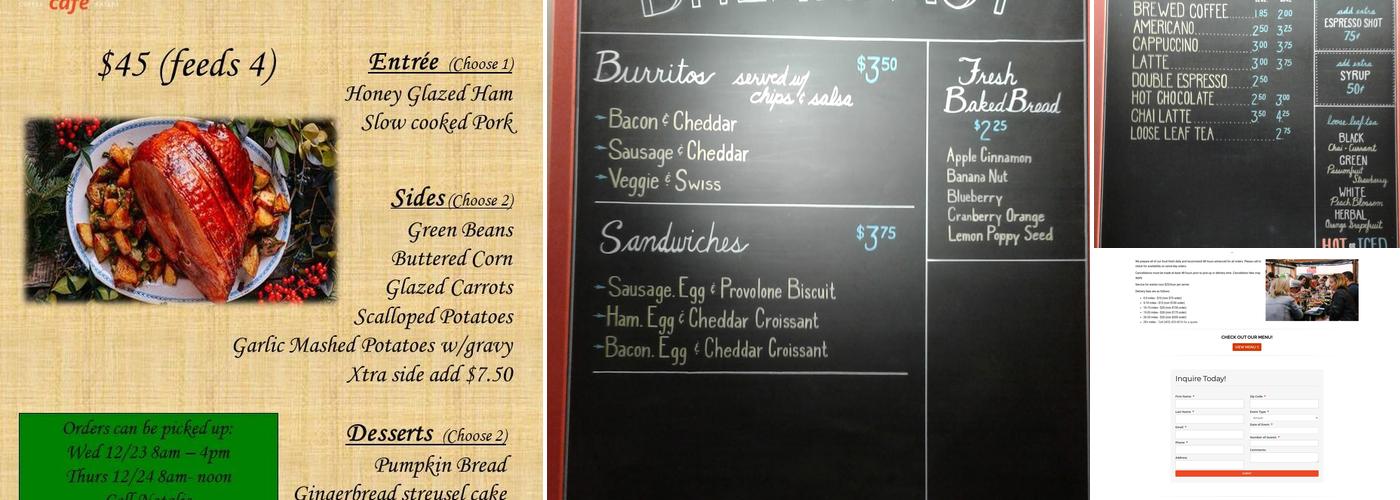 cafe
$45 (feeds 4)
Entrée (Choose 1)
Honey Glazed Ham
Slow cooked Pork
Sides (Choose 2)
Green Beans
Buttered Corn
Glazed Carrots
Scalloped Potatoes
Garlic Mashed Potatoes w/gravy
Xtra side add $7.50
Desserts (Choose 2)
Pumpkin Bread
Gingerbread streusel cake
Orders can be picked up:
Wed 12/23 8am – 4pm
Thurs 12/24 8am- noon
Call Natalie
Burritos served w/ $3.50
chips & salsa
Bacon & Cheddar
Sausage & Cheddar
Veggie & Swiss
Sandwiches $3.75
Sausage, Egg & Provolone Biscuit
Ham, Egg & Cheddar Croissant
Bacon, Egg & Cheddar Croissant
Fresh
Baked Bread
$2.25
Apple Cinnamon
Banana Nut
Blueberry
Cranberry Orange
Lemon Poppy Seed
BREWED COFFEE 1.85 2.00
AMERICANO 2.50 3.25
CAPPUCCINO 3.00 3.75
LATTE 3.00 3.75
DOUBLE ESPRESSO 2.50
HOT CHOCOLATE 2.50 3.00
CHAI LATTE 3.50 4.25
LOOSE LEAF TEA 2.75
add extra
ESPRESSO SHOT
75¢
add extra
SYRUP
50¢
loose leaf tea
BLACK
Chai · Currant
GREEN
Passionfruit
Strawberry
WHITE
Peach Blossom
HERBAL
Orange Grapefruit
HOT or ICED
CHECK OUT OUR MENU!
VIEW MENU
Inquire Today!
First Name *
Zip Code *
Last Name *
Event Type *
Email *
Date of Event *
Phone *
Number of Guests *
Address
Comments
SUBMIT